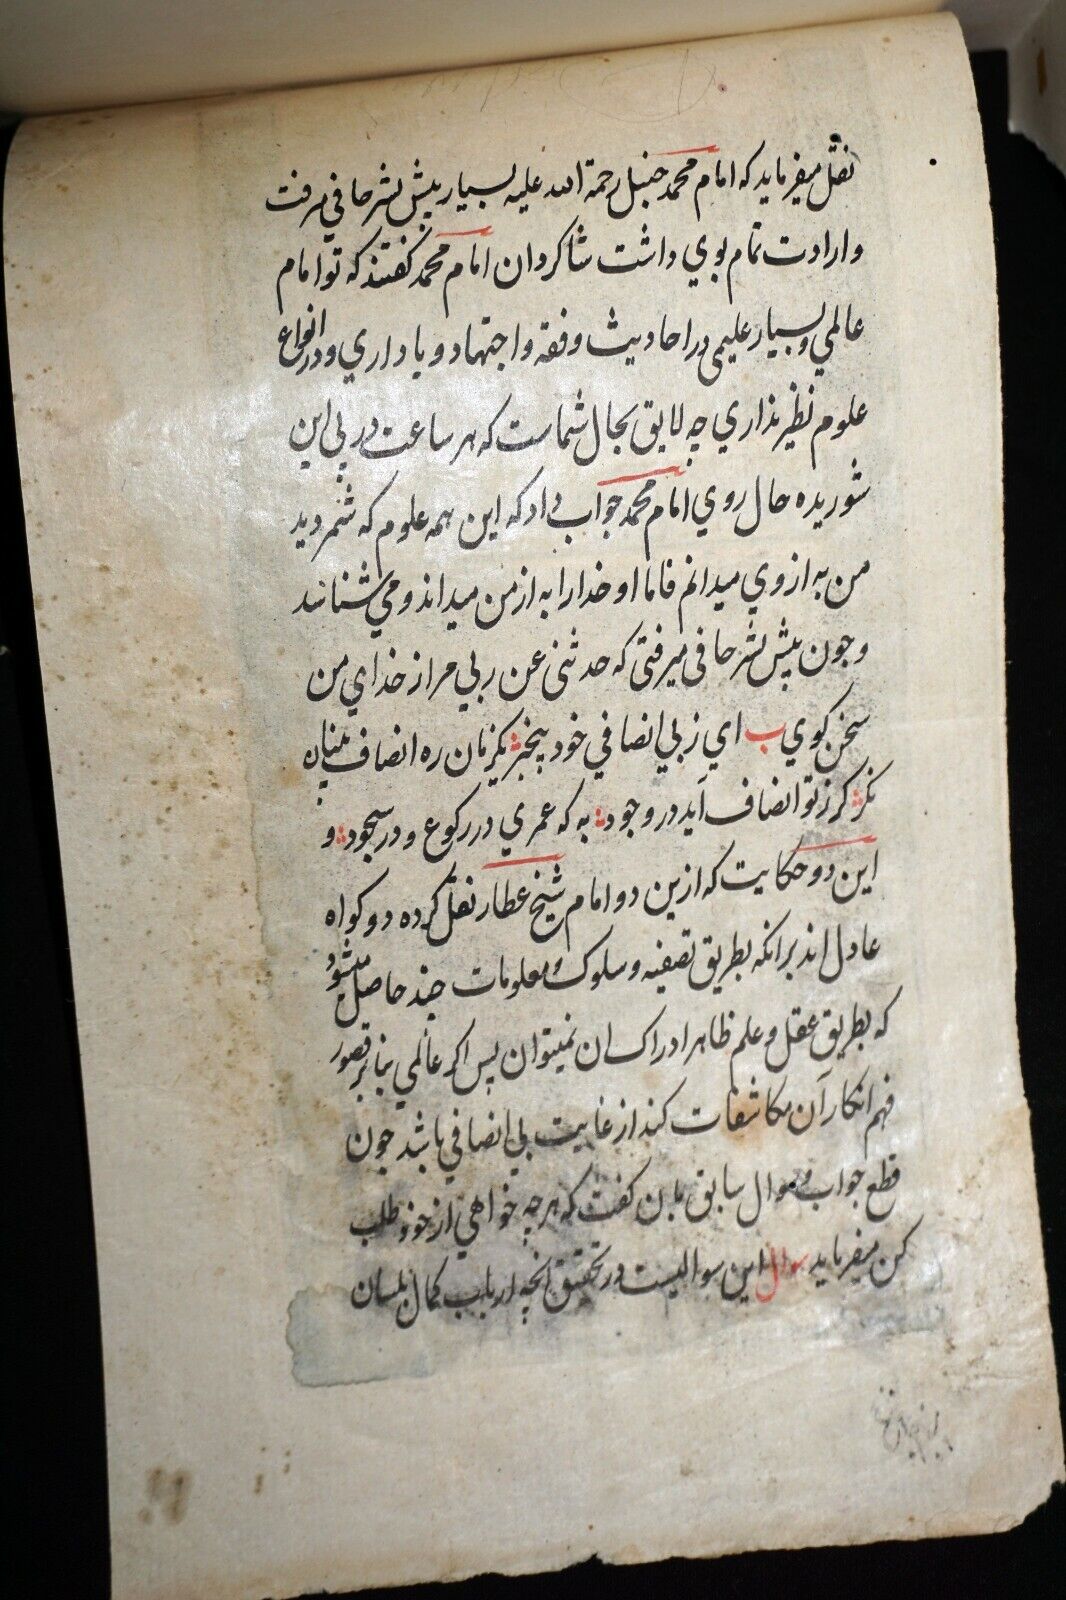 نقل میفرماید که امام محمد حنبل رحمة الله علیه بسیار پیش بشر حافي مرفت
وارادت تمام بوي داشت شاکردان امام محمد کفتند که تو امام
عالمي و بسیار علیمی در احادیث و فقه و اجتهاد و یاداري و در انواع
علوم نظیر نداري چه لایق بحال شماست که هر ساعت در پی این
شوریده حال روي امام محمد جواب داد که این همه علوم که شمردید
من به ازوي میدانم فاما او خدا را به از من میداند و مي شناسد
و جون پیش بشر حافی میرفتی که حدثنی عن ربي مرا از خداي من
سخن کوي ب اي ز بي انصافي خود بیخبر یکزمان ره انصاف
نکر کر ز تو انصاف آید در وجود به که عمري در رکوع و در سجود و
این دو حکایت که ازین دو امام شیخ عطار نقل کرده دو کواه
عادل اند برانکه بطریق تصفیه و سلوک معلومات چند حاصل میشود
که بطریق عقل و علم ظاهر ادراک ان نمیتوان پس اکر عالمي بنابر قصور
فهم انکار آن مکاشفات کند از غایت بي انصافي باشد جون
قطع جواب و سوال سابق بان کفت که هر چه خواهي از خود طلب
کن میفرماید سوال این سوالیست در تحقیق انچه ارباب کمال بلسان